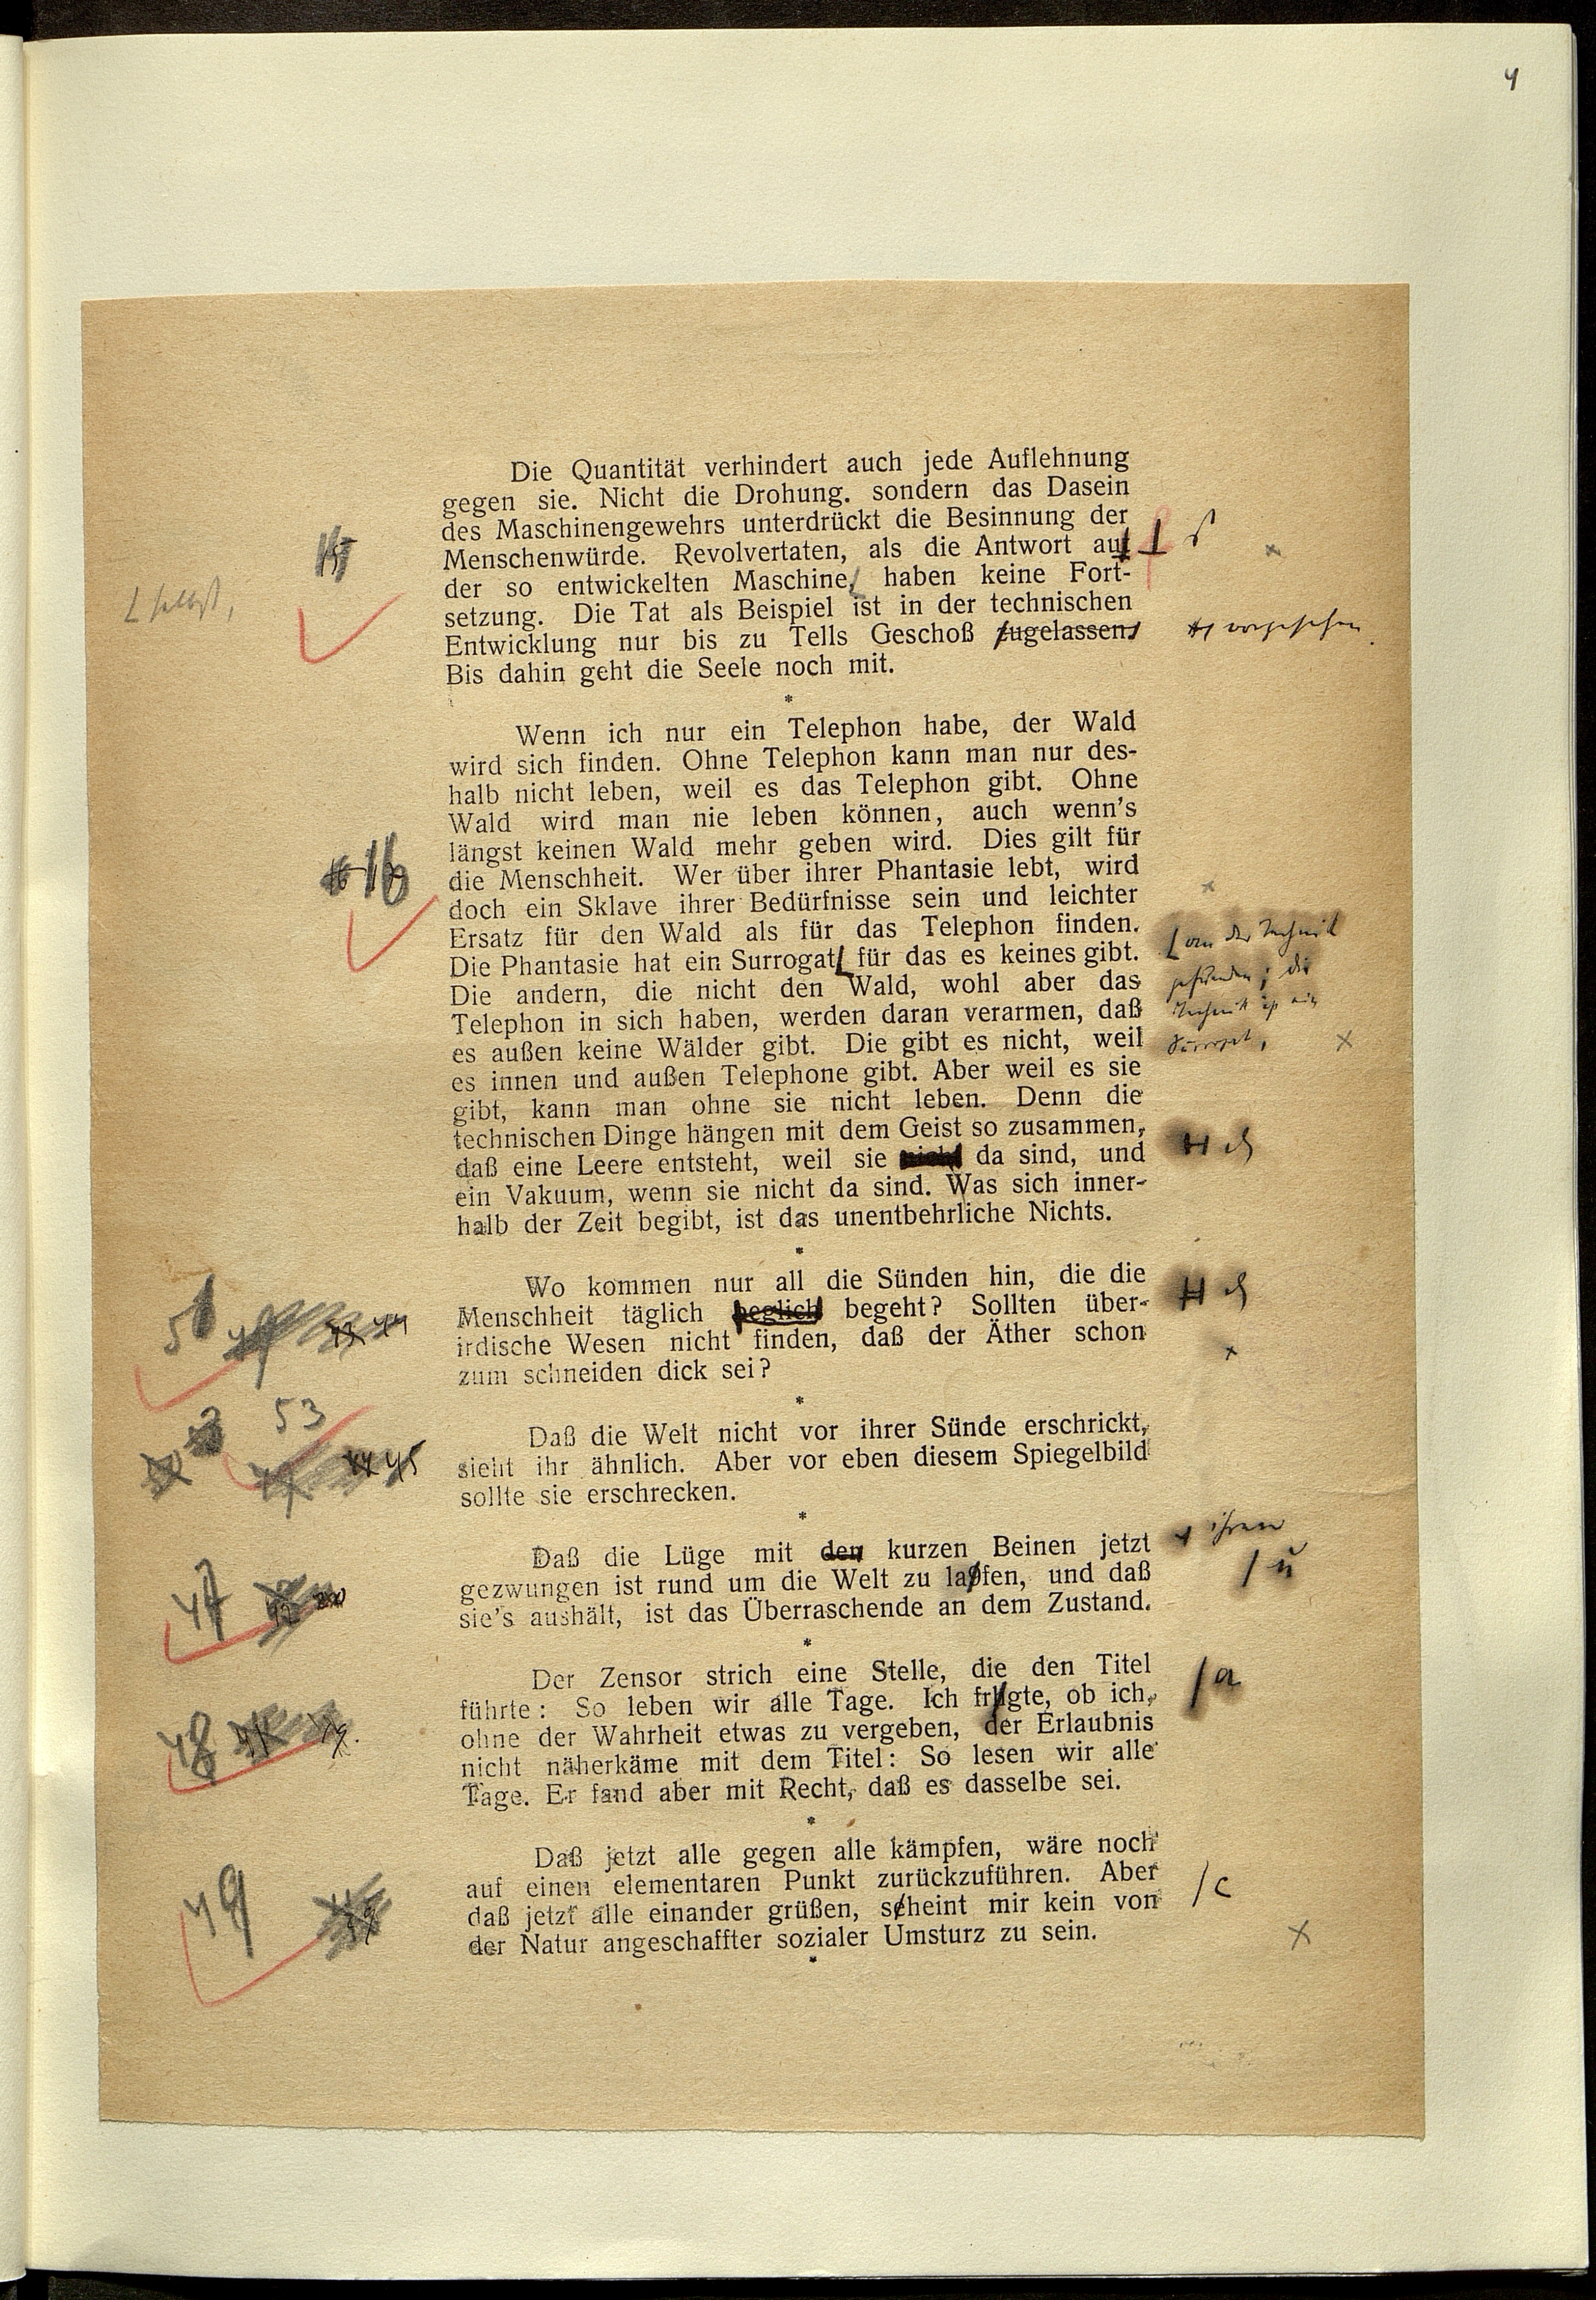 4
Die Quantität verhindert auch jede Auflehnung
gegen sie. Nicht die Drohung. sondern das Dasein
des Maschinengewehrs unterdrückt die Besinnung der
15
Menschenwürde. Revolvertaten, als die Antwort auf
der so entwickelten Maschine, haben keine Fort-
⌊ selbst,
setzung. Die Tat als Beispiel ist in der technischen
Entwicklung nur bis zu Tells Geschoß zugelassen.
vorgesehen.
Bis dahin geht die Seele noch mit.
*
Wenn ich nur ein Telephon habe, der Wald
wird sich finden. Ohne Telephon kann man nur des-
halb nicht leben, weil es das Telephon gibt. Ohne
Wald wird man nie leben können, auch wenn's
längst keinen Wald mehr geben wird. Dies gilt für
16
die Menschheit. Wer über ihrer Phantasie lebt, wird
doch ein Sklave ihrer Bedürfnisse sein und leichter
Ersatz für den Wald als für das Telephon finden.
Die Phantasie hat ein Surrogat⌊ für das es keines gibt.
⌊ an der Technik
gefunden; die
Technik ist ein
Surrogat,
Die andern, die nicht den Wald, wohl aber das
Telephon in sich haben, werden daran verarmen, daß
es außen keine Wälder gibt. Die gibt es nicht, weil
es innen und außen Telephone gibt. Aber weil es sie
gibt, kann man ohne sie nicht leben. Denn die
technischen Dinge hängen mit dem Geist so zusammen,
daß eine Leere entsteht, weil sie nicht da sind, und
ein Vakuum, wenn sie nicht da sind. Was sich inner-
halb der Zeit begibt, ist das unentbehrliche Nichts.
*
Wo kommen nur all die Sünden hin, die die
51
Menschheit täglich peglich begeht? Sollten über-
irdische Wesen nicht finden, daß der Äther schon
zum schneiden dick sei?
*
53
Daß die Welt nicht vor ihrer Sünde erschrickt,
45
sieht ihr ähnlich. Aber vor eben diesem Spiegelbild
sollte sie erschrecken.
*
Daß die Lüge mit den kurzen Beinen jetzt
ihren
47
gezwungen ist rund um die Welt zu laofen, und daß
/ u
sie's aushält, ist das Überraschende an dem Zustand.
*
Der Zensor strich eine Stelle, die den Titel
/ a
führte: So leben wir alle Tage. Ich frugte, ob ich,
48
ohne der Wahrheit etwas zu vergeben, der Erlaubnis
nicht näherkäme mit dem Titel: So lesen wir alle
Tage. Er fand aber mit Recht, daß es dasselbe sei.
*
Daß jetzt alle gegen alle kämpfen, wäre noch
auf einen elementaren Punkt zurückzuführen. Aber
49
daß jetzt alle einander grüßen, seheint mir kein von
/ c
der Natur angeschaffter sozialer Umsturz zu sein.
*